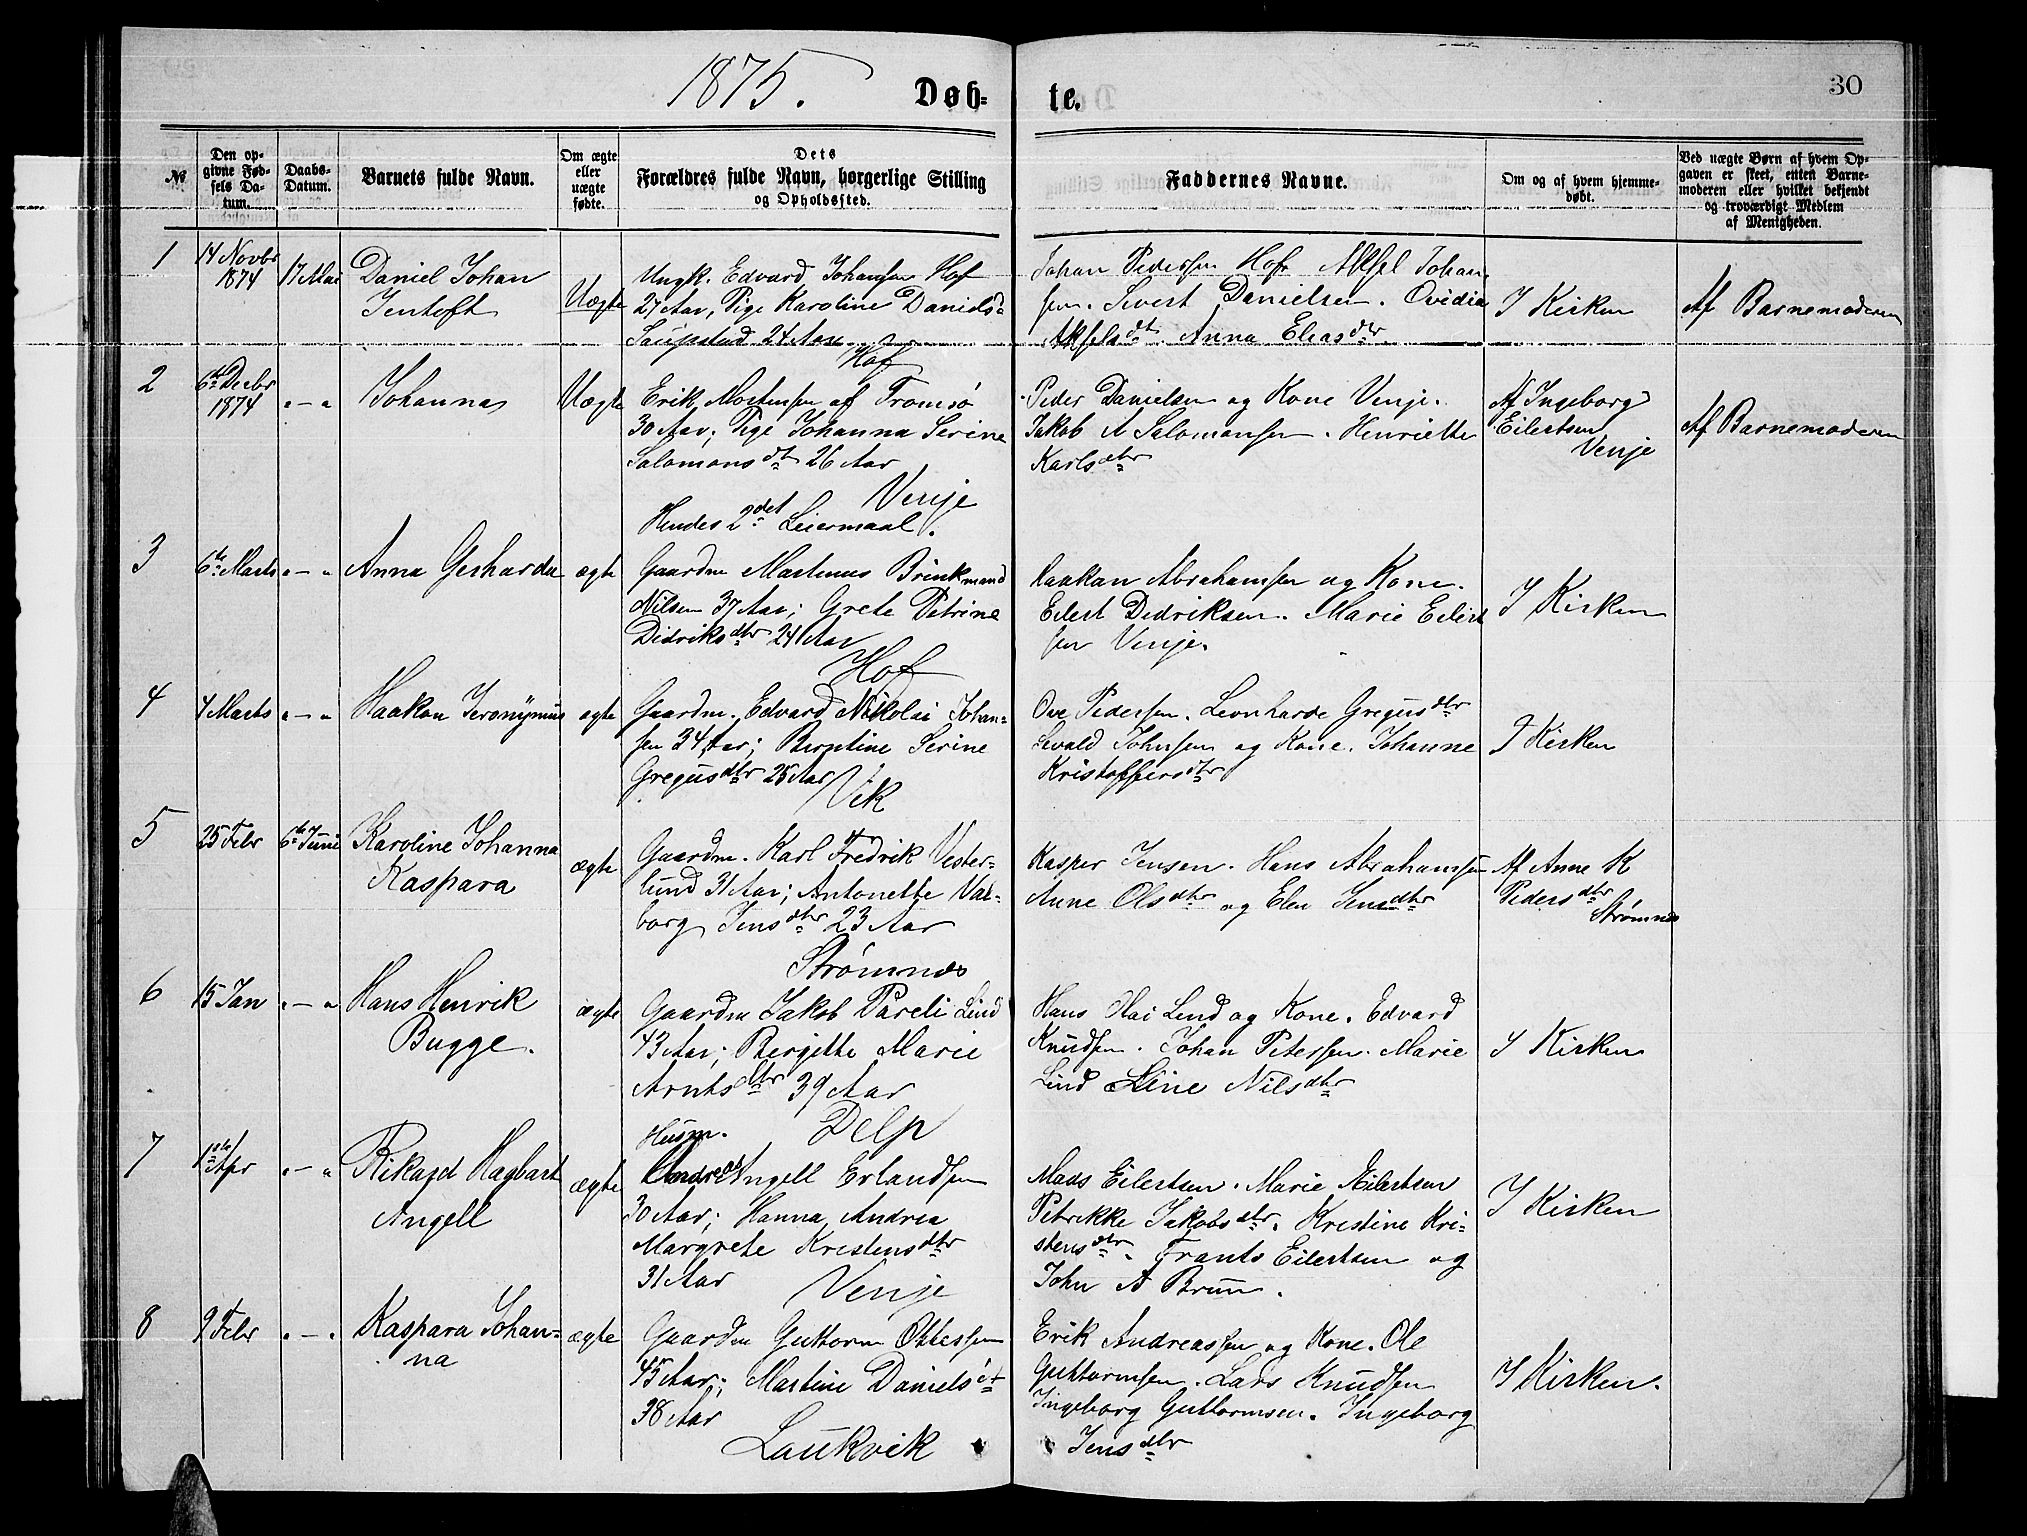 1875.
Døb-
te.
30
№
Den op-
givne Fød-
sels Da-
tum.
Daabs-
Datum.
Barnets fulde Navn.
Om ægte
eller
uægte
fødte.
Dets
Forældres fulde Navn, borgerlige Stilling
og Opholdssted.
Faddernes Navne.
Om og af hvem hjemme-
døbt.
Ved uægte Børn af hvem Op-
gaven er skeet, enten Barne-
moderen eller hvilket bekjendt
og troværdigt Medlem
af Menigheden.
1
14 Novbr
1874
17 Mai
Daniel Johan
Jentoft
Uægte
Ungk. Edvard Johansen Hof
27 Aar, Pige Karoline Daniels-
Saupstad 24 Aar
Hof
Johan Pedersen Hof Aksel Johan-
sen. Sivert Danielsen. Ovidia
Akselsdt. Anna Eliasdtr
I Kirken
Af Barnemoderen
2
6te Decbr
1874
" – "
Johanna
Uægte
Erik Mortensen af Tromsø
30 Aar; Pige Johanna Serine
Salomonsdt 26 Aar
Venje
Hendes 2det Leiermaal.
Peder Danielsen og Kone Venje.
Jakob A Salomonsen. Henriette
Karlsdtr
Af Ingeborg
Eilertsen
Venje
Af Barnemoderen
3
6te Marts
" – "
Anna Gerharda
ægte
Gaardm Martinus Brinkmand
Nilsen 37 Aar; Grete Petrine
Didriksdtr 24 Aar
Hof
Haakan Abrahamsen og Kone.
Eilert Didriksen. Marie Eilert
sen Venje.
I Kirken
4
4 Marts
" – "
Haakon Jeronymus
ægte
Gaardm. Edvard Nikolai Johan-
sen 34 Aar; Berntine Serine
Gregusdtr 25 Aar
Vik
Ove Pedersen. Leonharde Gregusdtr
Sevald Johnsen og Kone. Johanne
Kristoffersdtr
I Kirken
5
25 Febr
6te Juni
Karoline Johanna
Kaspara
ægte
Gaardm. Karl Fredrik Vester-
lund 31 Aar; Antonette Val-
borg Jensdtr 23 Aar
Strømnes
Kasper Jensen. Hans Abrahamsen
Anne Olsdtr og Elen Jensdtr
Af Anne K
Pedersdtr
Strømnes
6
15 Jan
" – "
Hans Henrik
Bugge.
ægte
Gaardm Jakob Pareli Lind
43 Aar; Bergitte Marie
Arntsdtr 39 Aar
Delp
Hans Olai Lind og Kone. Edvard
Knudsen. Johan Petersen. Marie
Lind Line Nilsdtr
I Kirken
7
1ste Apr
" – "
Rikard Hagbart
Angell
ægte
Husm.
Andreas Angell Erlandsen
30 Aar; Hanna Andrea
Margrete Kristensdtr
31 Aar
Venje
Mads Eilertsen. Marie Eilertsen
Petrikke Jakobsdtr. Kristine Kri-
stensdtr. Frants Eilertsen og
John A Bruun.
I Kirken
8
9 Febr
" – "
Kaspara Johan-
na
ægte
Gaardm Guttorm Ottesen
45 Aar; Martine Danielsdt
38 Aar
Laukvik
Erik Andreassen og Kone. Ole
Guttormsen. Lars Knudsen
Ingeborg Guttormsen. Ingeborg
Jensdtr
I Kirken.